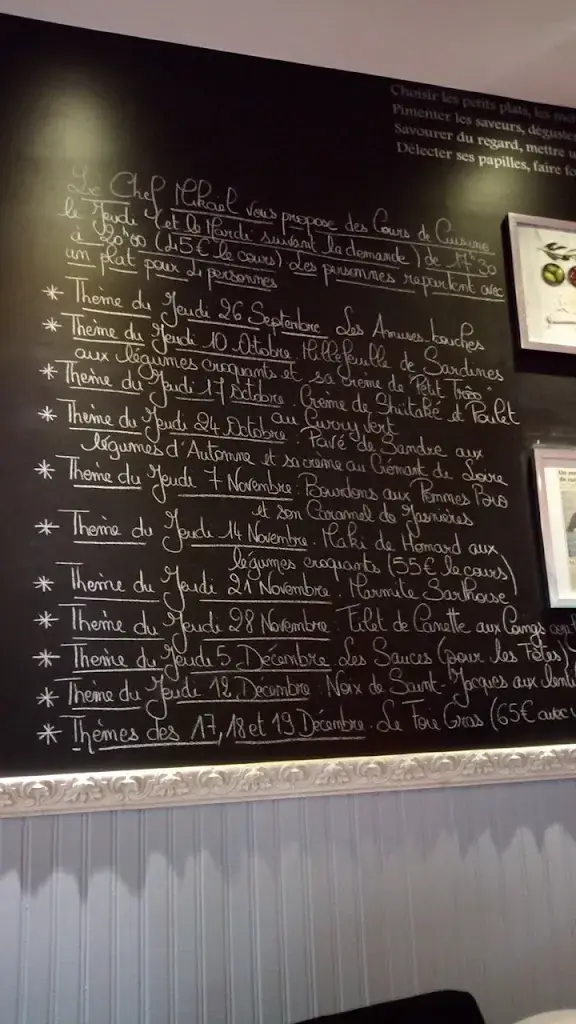 Choisir les petits plats, les
Pimenter les saveurs,
Savourer du regard, mettre
Délecter ses papilles, faire
Le Chef Mikaël vous propose des Cours de Cuisine
le Jeudi (et le Mardi suivant la demande) de 17h30
à 20h00 (45€ le cours) Les personnes repartent avec
un plat pour 4 personnes
* Thème du Jeudi 26 Septembre. Les Amuses-bouches
* Thème du Jeudi 10 Octobre. Millefeuille de Sardines
aux légumes croquants et sa crème de Petit Trôo
* Thème du Jeudi 17 Octobre. Crème de Shiitaké et Poulet
au Curry Vert
* Thème du Jeudi 24 Octobre. Pavé de Sandre aux
légumes d'Automne et sa crème au Crémant de Loire
* Thème du Jeudi 7 Novembre. Bourdons aux Pommes Poiro
et son Caramel de Jasnières
* Thème du Jeudi 14 Novembre. Maki de Homard aux
légumes croquants (55€ le cours)
* Thème du Jeudi 21 Novembre. Marmite Sarthoise
* Thème du Jeudi 28 Novembre. Filet de Canette aux Coings
* Thème du Jeudi 5 Décembre Les Sauces (pour les Fêtes)
* Thème du Jeudi 12 Décembre. Noix de Saint-Jacques aux
* Thèmes des 17, 18 et 19 Décembre. Le Foie Gras (65€ avec